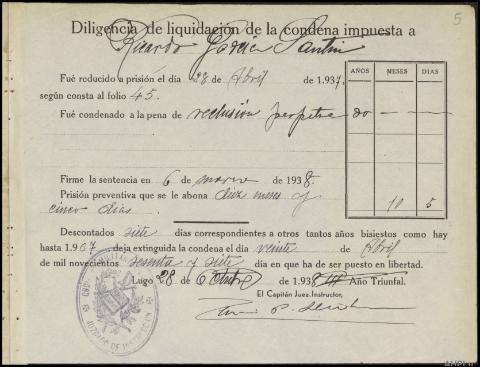 5
Diligencia de liquidación de la condena impuesta a
Ricardo García Santin
Fué reducido a prisión el día 28 de Abril de 1.937.
según consta al folio 45.
Fué condenado a la pena de reclusión perpetua
AÑOS MESES DIAS
30 — —
Firme la sentencia en 6 de marzo de 1938.
Prisión preventiva que se le abona diez meses y
cinco días.
10 5
Descontados siete días correspondientes a otros tantos años bisiestos como hay
hasta 1.967 deja extinguida la condena el día veinte de Abril
de mil novecientos sesenta y siete día en que ha de ser puesto en libertad.
Lugo 28 de Octubre de 1938 III Año Triunfal.
El Capitán Juez Instructor,
JUZGADO DE INSTRUCCION